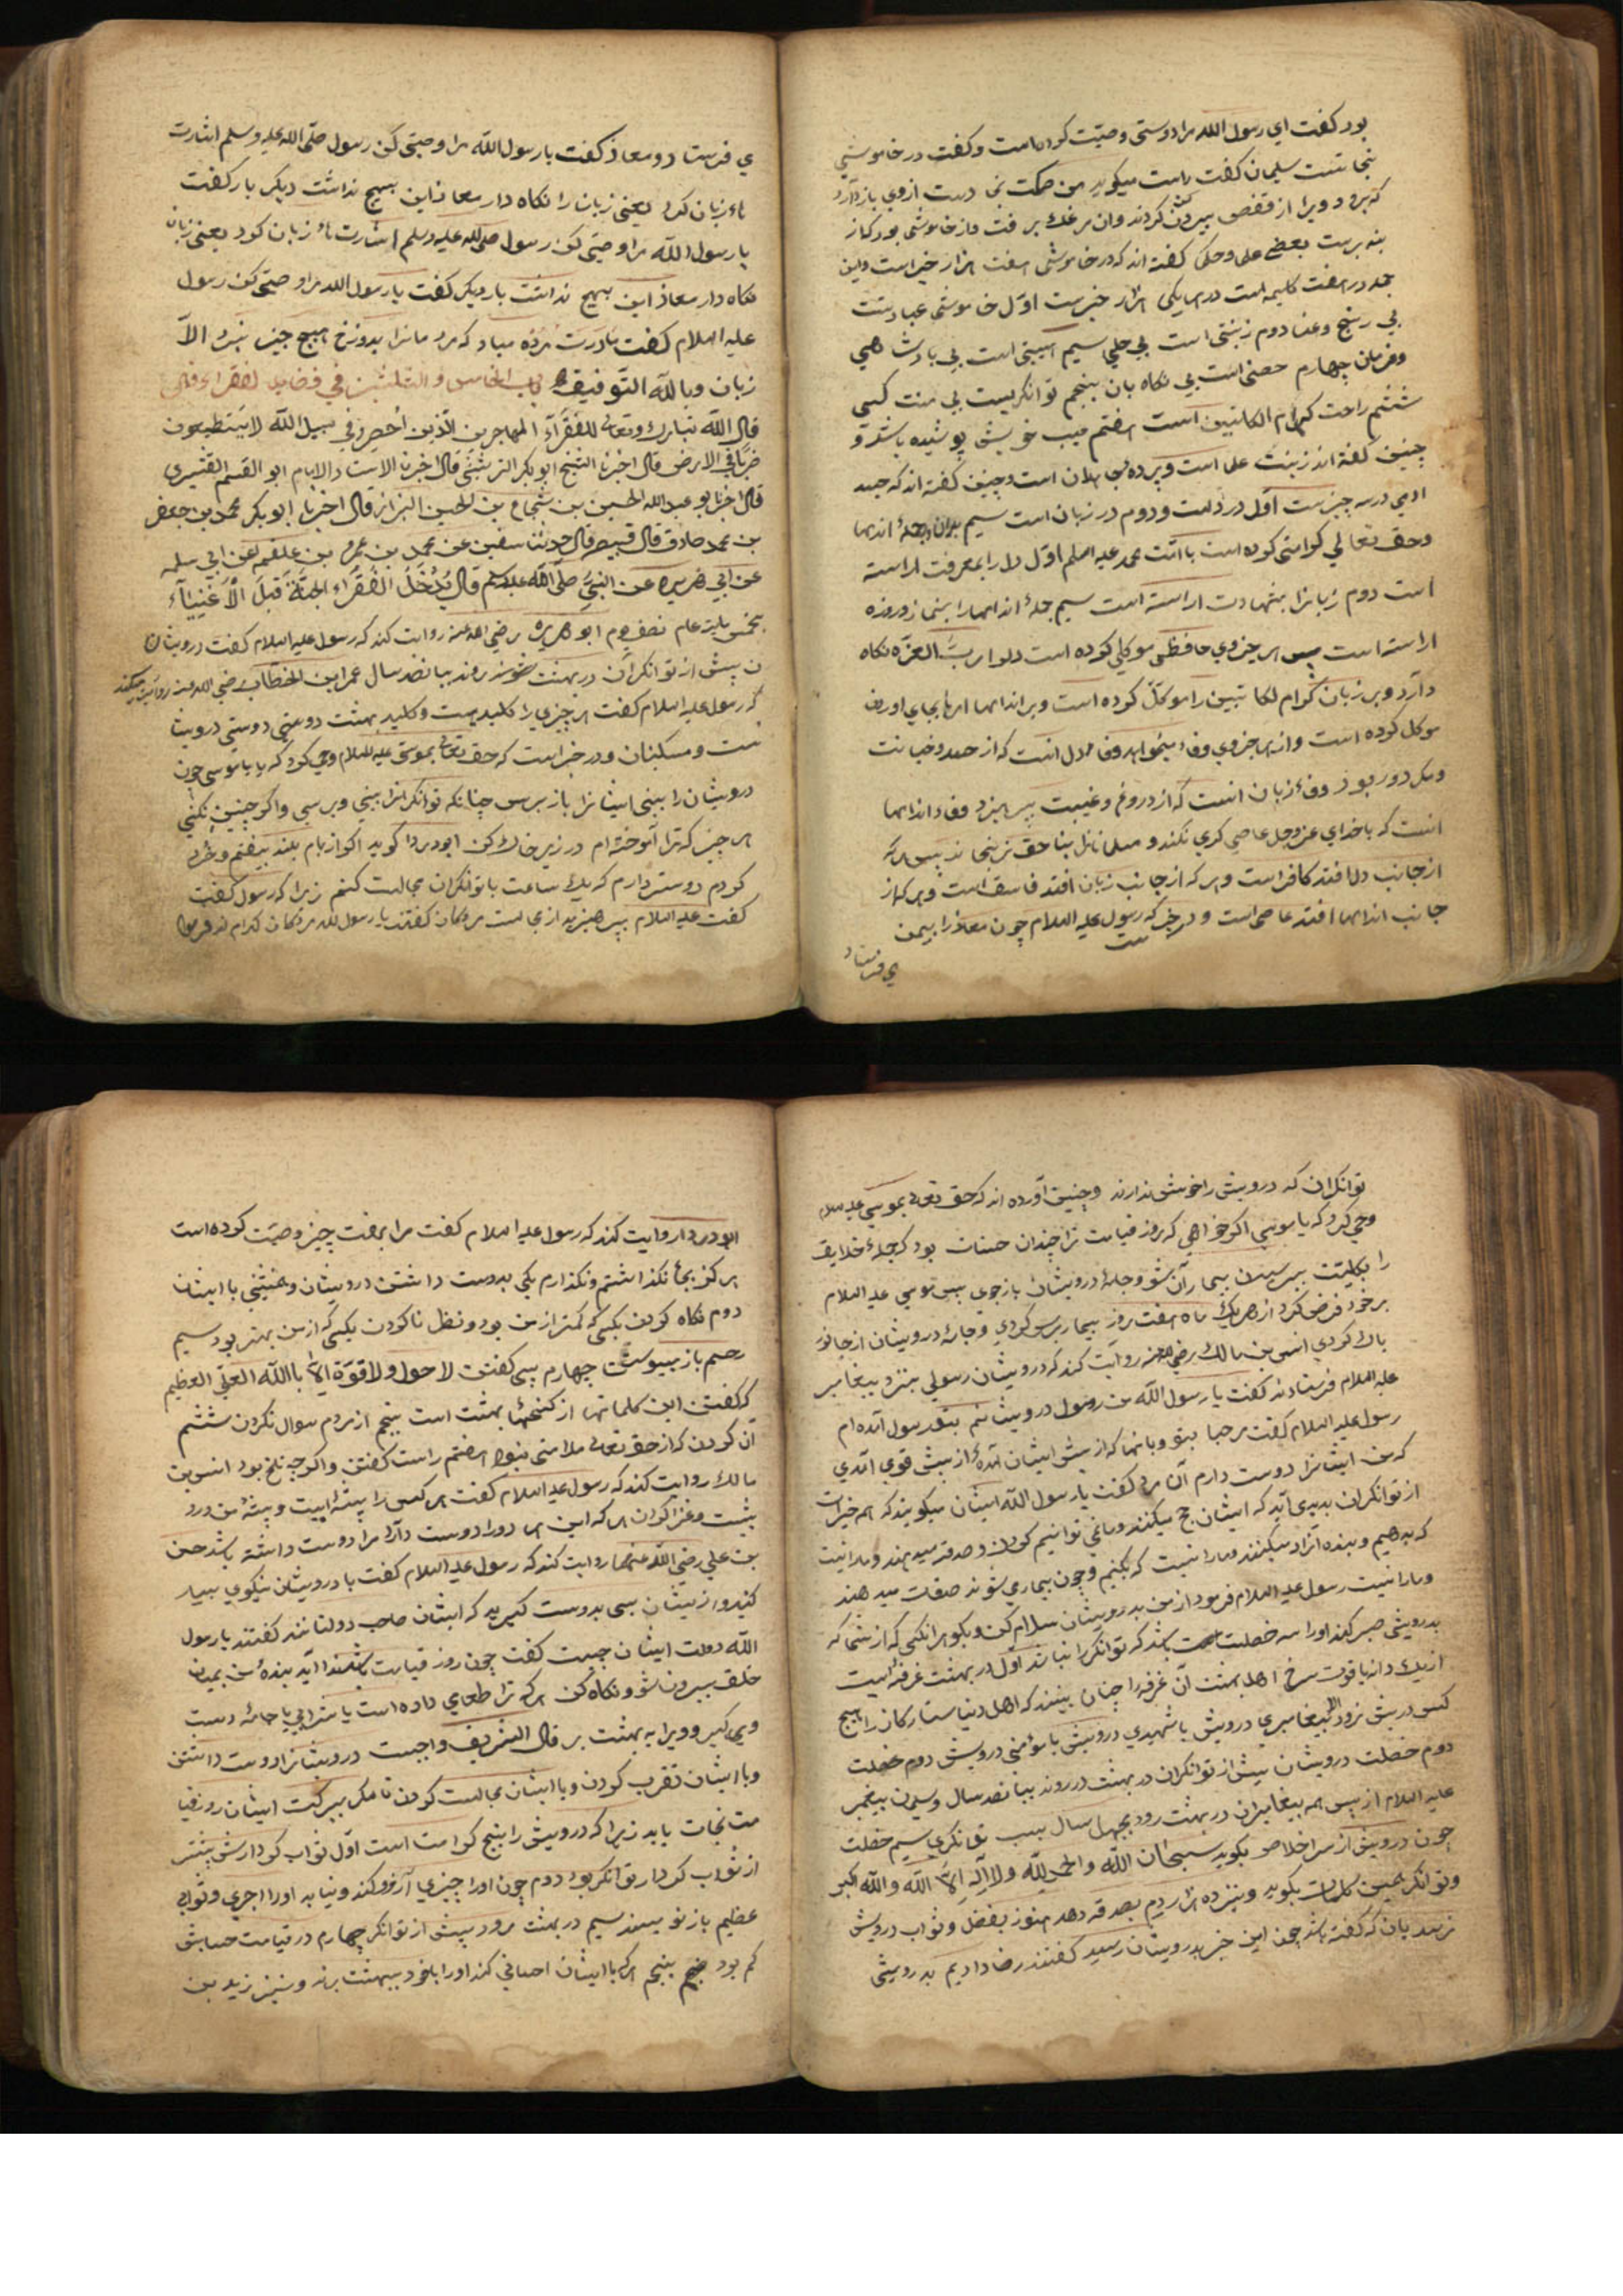 بود کفت ای رسول الله مرا دوستی وصیّت کرد بامت و کفت در خاموشی
نجاتست سلیمان کفت راست میکوید من حکمت نمی دست ازوی بازدارد
که برد ویرا از قفص بیرون کردند وان مرغک برفت واز خاموشی بود کناز
بنه برست بعضی علما وحکما کفته اند که در خاموشی هفت هزار خیر است واین
جمله در هفت کلیمه است در هر یکی هزار خیرست اوّل خاموشی عبادتست
بی رنج وعنا دوم زینتی است بی حلی سیم هیبتی است بی پادشاهی
وفرمان چهارم حصنی است بی نکاه بان پنجم توانکریست بی منت کسی
ششم راحت کرام الکاتبین است هفتم عیب خویش پوشیده باشد و
چنین کفته اند زینت علما است و پرده جاهلان است وچنین کفته اند که جسد
ادمی در سه چیزست اوّل در دلست ودوم در زبان است سیم اندامها
وحق تعالی کرامتی کرده است با امّت محمد علیه السلم اوّل دلرا بمعرفت اراسته
است دوم زبانرا بشهادت اراسته است سیم جملهٔ اندامها را بنماز وروزه
اراسته است پس هر جزوی حافظی موکلی کرده است دلرا ربّ العزّه نکاه
دارد وبر زبان کرام الکاتبین را موکّل کرده است وبر اندامها امر بجای اوردن
موکل کرده است واز هر جزوی وفاء میخواهد وفاء دل انست که از حسد وخیانت
ومکر دور بود وفاء زبان انست که از دروغ وغیبت بپرهیزد وفاء اندامها
انست که با خدای عزّوجلّ عاصی کری نکند ومسلمانان بناحق نرنجاند پس هر که
از جانب دل افتد کافر است وهر که از جانب زبان افتد فاسق است وهر که از
جانب اندامها افتد عاصی است ودر خبر که رسول علیه السلام چون معاذ را بیمن
ست
می فرستاد
می فرستاد ومعاذ کفت یا رسول الله مرا وصیتی کن رسول صلّی الله علیه وسلم اشارت
با زبان کرد یعنی زبانرا نکاه دار معاذ این بهیچ نداشت دیکر بار کفت
یا رسول الله مرا وصیتی کن رسول صلی الله علیه وسلم اشارت با زبان کرد یعنی زبان
نکاه دار معاذ این بهیچ نداشت بار دیکر کفت یا رسول الله مرا وصیتی کن رسول
علیه السلام کفت مادرت مرده مباد که مردمانرا بدوزخ هیچ چیز نبرد الاّ
زبان وبالله التّوفیق باب الخامس والثلثین فی فضایل الفقراء قال
قال الله تبارک وتعالی للفقرآء المهاجرین الّذین اُحصروا فی سبیل الله لا یستطیعون
ضربًا فی الارض قال اخبرنا الشیخ ابوبکر قال اخبرنا الاستاد الامام ابو القسم القشیری
قال اخبرنا ابو عبدالله الحسین بن شجاع بن الحسین البزاز قال اخبرنا ابوبکر محمد بن جعفر
بن محمد صادق قال قبیصه قال حدثنا سفین عن محمد بن عمرو بن علقمه عن ابی سلمه
عن ابی هریره عن النبی صلّی الله علیه وسلم قال یُدْخَلُ الفُقَرَاء الجنّةَ قَبلَ الاَغنیآء
بخمس مایة عام نصف یوم ابو هریره رضی الله عنه روایت کند که رسول علیه السلام کفت درویشان
ن پیش از توانکران در بهشت روند بپانصد سال عمر ابن الخطّاب رضی الله عنه روایت میکند
که رسول علیه السلام کفت هر چیزی را کلیدیست وکلید بهشت دوستی درویشا
نست ومسکینان ودر خبر است که حق تعالی بموسی علیه السلام وحی کرد که یا موسی چون
درویشان را ببینی ایشانرا باز پرس چنانکه توانکرانرا ببینی وپرسی واکر چنین نکنی
هر چیز که ترا آموخته ام در زیر خاک کن ابو دردا کوید اکر از بام بلند بیفتم وخرد
کردم دوستر دارم که یک ساعت با توانکران مجالست کنم زیرا که رسول کفت
کفت علیه السلام بپرهیزید از مجالست مردکان کفتند یا رسول الله مردکان کدام اند فرمود
توانکران که درویش را خویش ندارند وچنین آورده اند که حق تعالی بموسی علیه السلام
وحی کرد که یا موسی اکر خواهی که روز قیامت ترا چندان حسنات بود که جملهٔ خلایق
را بکلیت بپرسیدن بیماران شو وجامهٔ درویشان بازجوی پس موسی علیه السلام
برخود فرض کرد از هر یک ماه هفت روز بیمار پرسی کردی وجامهٔ درویشان از جانور
پاک کردی انس بن مالک رضی الله عنه روایت کند که درویشان رسولی بنزد پیغامبر
علیه السلام فرستادند کفت یا رسول الله من رسول درویشانم بتو رسول آمده ام
رسول علیه السلام کفت مرحبا بتو وبانها که از پیش ایشان آمدهٔ از پیش قومی آمدی
که من ایشانرا دوست دارم آن مرد کفت یا رسول الله ایشان میکویند که هم خیرات
از توانکران پدید می آید که ایشان حج میکنند وما نمی توانیم کردن وصدقه میدهند ومارا نیست
که بدهیم وبنده آزاد میکنند ومارا نیست که بکنیم وچون بیمار می شوند صدقات میدهند
ومارا نیست رسول علیه السلام فرمود از من بدرویشان سلام کن وبکو هر انکسی که از شما که
بدرویشی صبر کند اورا سه خصلت باشد که توانکرانرا نباشد اوّل در بهشت غرفهٔ است
از یک دانه یاقوت سرخ اهل بهشت آن غرفه را چنان بینند که اهل دنیا ستارکان را هیچ
کس درش نرود الا پیغامبری درویش یا شهیدی درویش یا مؤمنی درویش دوم خصلت
دوم خصلت درویشان پیش از توانکران در بهشت در روند بپانصد سال وسلیمن پیغمبر
علیه السلام از پس همه پیغامبران در بهشت رود بچهل سال بسبب توانکری سیم خصلت
چون درویش از سر اخلاص بکوید سبحان الله والحمد لله ولا اله الاّ الله والله اکبر
وتوانکر همین کلمات بکوید وبنزده هزار درم بصدقه دهد هنوز بفضل وثواب درویش
نرسد بان که کفته باشد چون این خبر بدرویشان رسید کفتند رضا دادیم بدرویشی
ابو دردا روایت کند که رسول علیه السلام کفت مرا بهفت چیز وصیّت کرده است
هرکز بجا نکذاشتم ونکذارم یکی بدوست داشتن درویشان وهمنشینی با ایشان
دوم نکاه کردن بکسی که کمتر از من بود ونظر ناکردن بکسی که از من بهتر بود سیم
رحم باز پیوستن چهارم بسی کفتن لا حول ولا قوّة الاّ بالله العلی العظیم
که کفتن این کلماتها از کنجهاء بهشت است پنجم از مردم سوال نکردن ششم
آن کردن که از حق تعالی ملامتی نبود هفتم راست کفتن واکر چه تلخ بود انس بن
مالک روایت کند که رسول علیه السلام کفت هر کس را پیشهٔ ایست وپیشهٔ من درو
یشیست وغزا کردن هر که این هر دورا دوست دارد مرا دوست داشته باشد حسن
بن علی رضی الله عنهما روایت کند که رسول علیه السلام کفت با درویشان نیکویی بسیار
کنید واز ایشان بسی بدوست کیرید که ایشان صاحب دولتانند کفتند یا رسول
الله دولت ایشان چیست کفت چون روز قیامت باشد ندا آید بندهٔ من بمیان
خلق بیرون شو ونکاه کن هر که ترا طعامی داده است یا شرابی یا جامهٔ دست
وی کیر وویرا به بهشت بر قال الشریف واجبست درویشانرا دوست داشتن
وبا ایشان تقرب کردن وبا ایشان مجالست کردن تا مکر ببرکت ایشان روز قیا
مت نجات یابد زیرا که درویش را پنج کرامت است اوّل ثواب کردارش بیشتر
از ثواب کردار توانکر بود دوم چون اورا چیزی آرزو کند ونیابد اورا اجری وثوابی
عظیم باز نویسند سیم در بهشت رود پیش از توانکر چهارم در قیامت حسابش
کم بود پنجم هر که با ایشان احسانی کند اورا با خود ببهشت برند ونیز زید بن